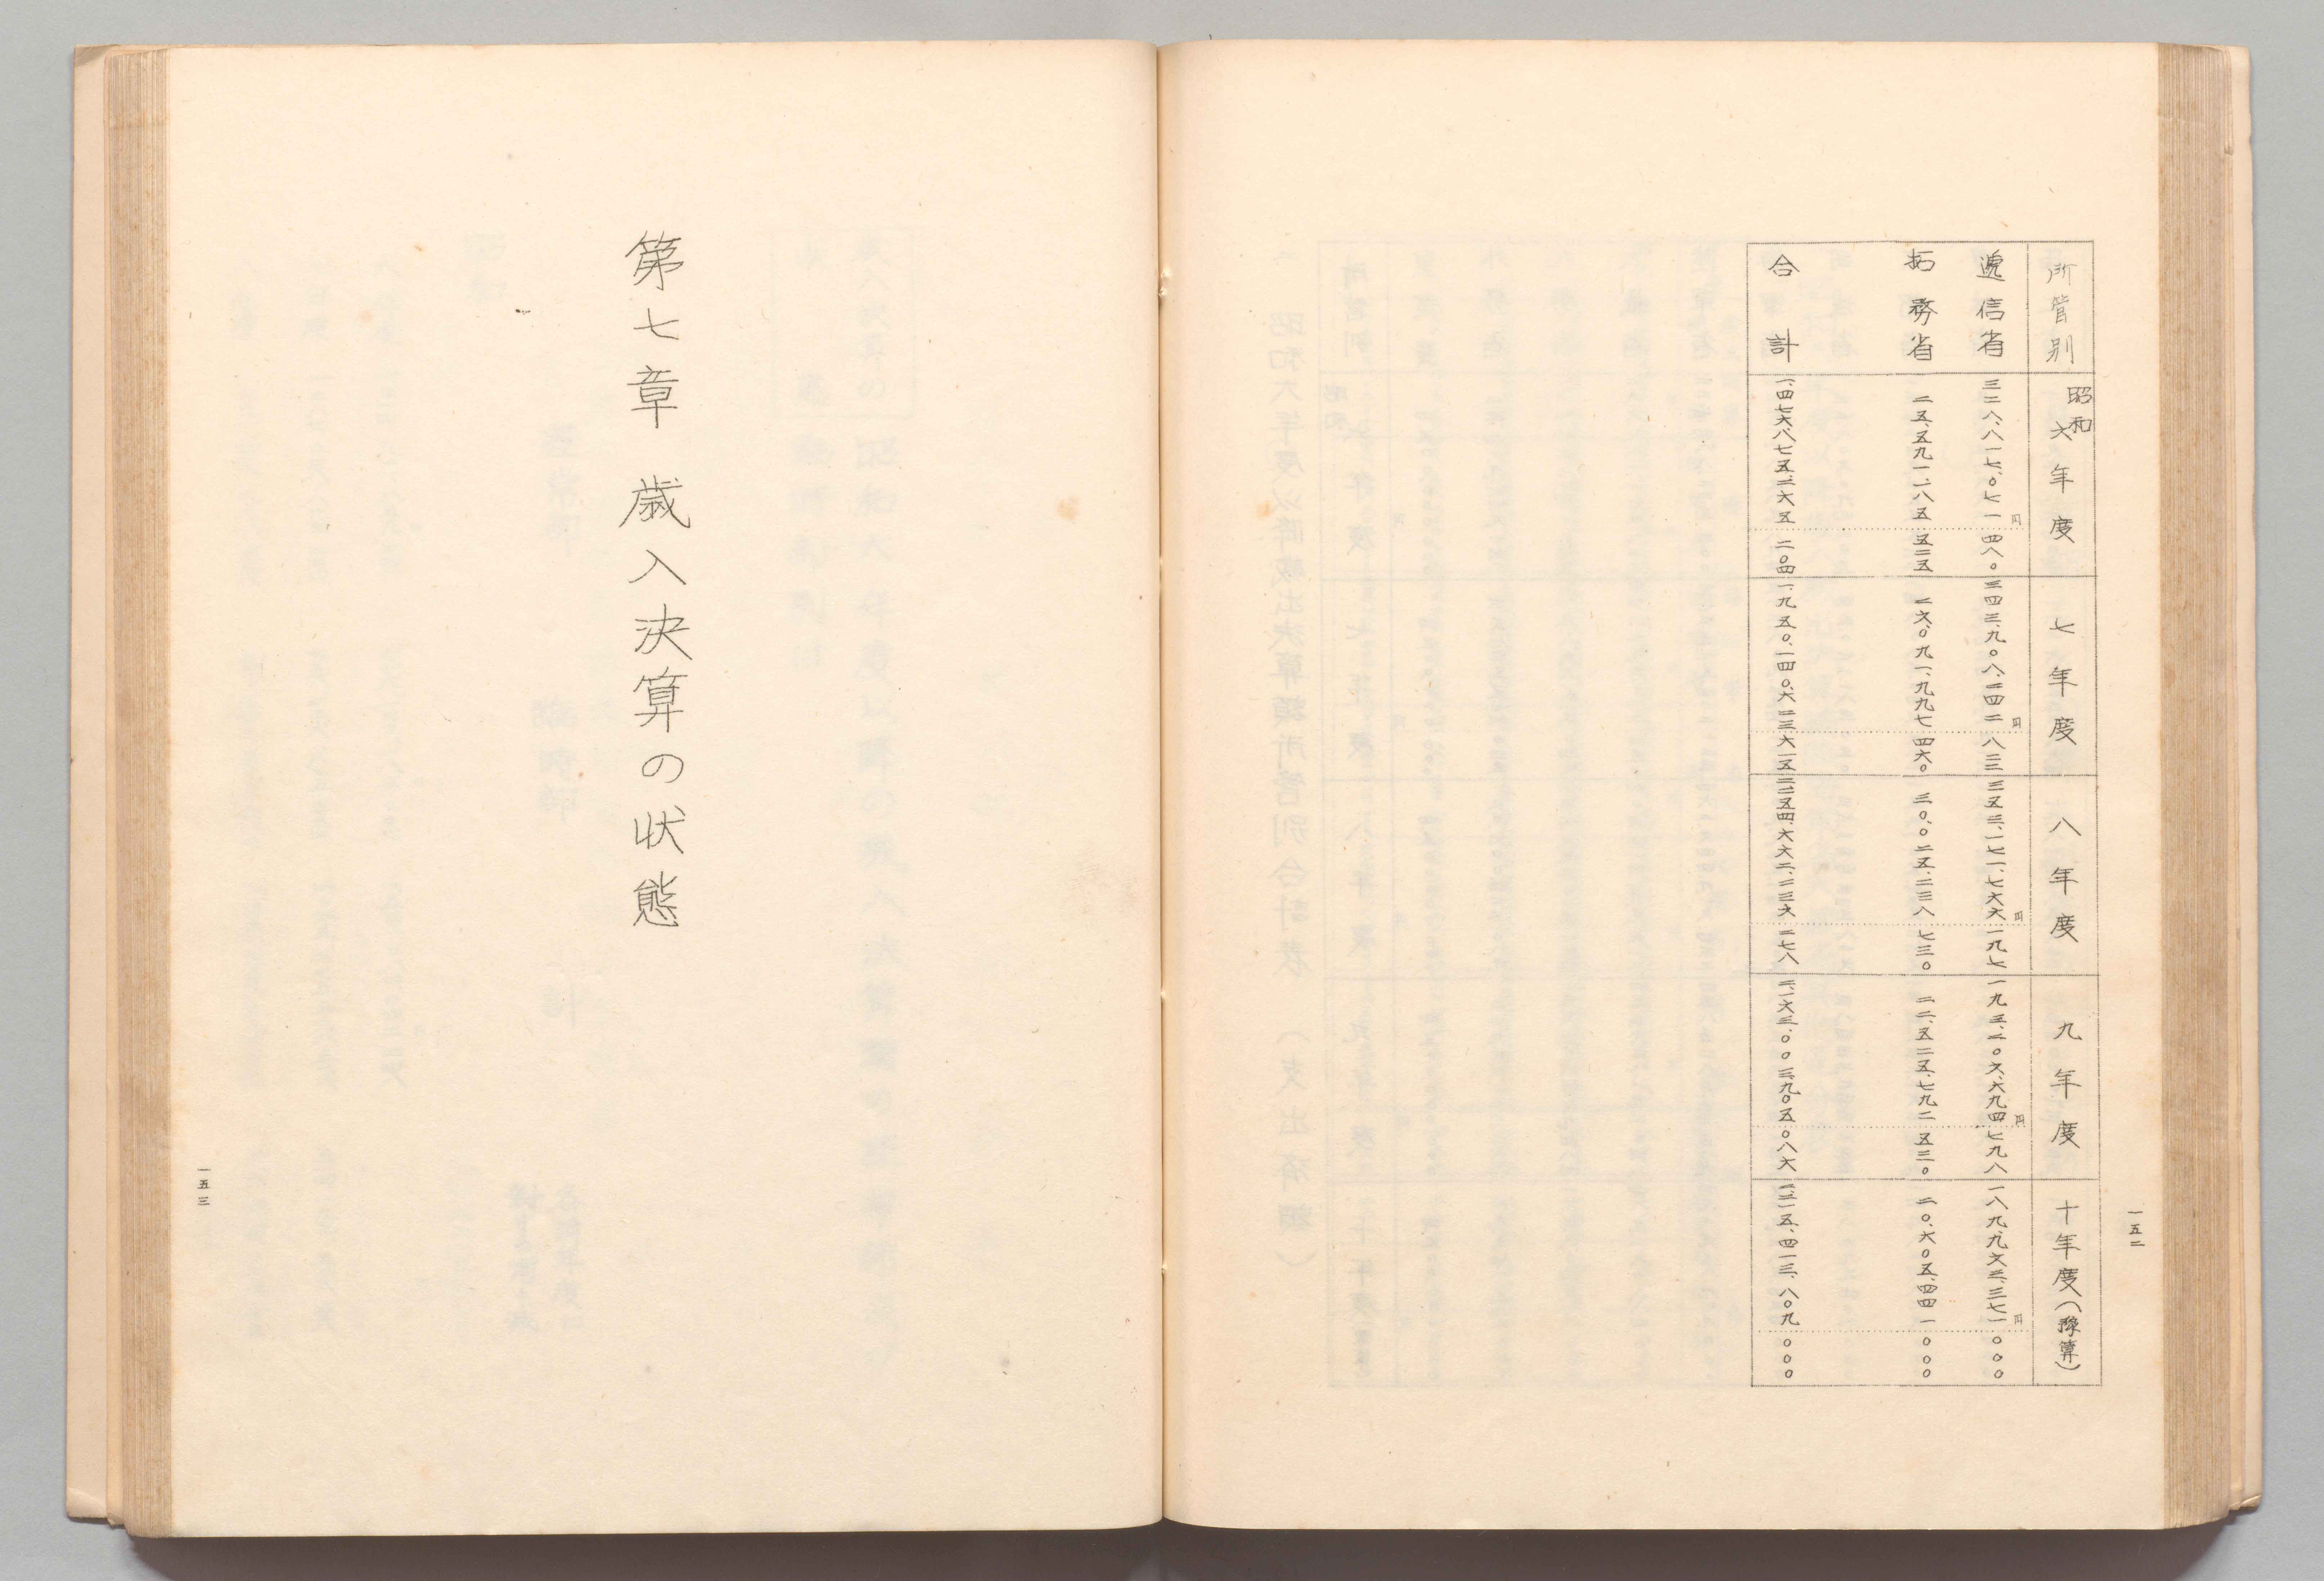 所管別
昭和六年度
七年度
八年度
九年度
十年度(豫算)
逓信省
三二八、八一七、〇七一円 四八〇
三四三、九〇八、二四二円 八三三
三五三、一七一、七六六円 一九七
一九三、二〇六、六九四円 七九八
一八九、九六三、三七一円 〇〇〇
拓務省
二五、五九一、一八五 五三五
二六、〇九一、九九七 四六〇
三〇、〇二五、二三八 七三〇
二二、五二五、七九二 五三〇
二〇、六〇五、四四一 〇〇〇
合計
一、四七六、八七五、三六五 二〇四
一、九五〇、一四〇、六三三 六一五
二、二五四、六六二、三三六 二七八
二、一六三、〇〇三、九〇五 〇八六
二、二一五、四一三、八〇九 〇〇〇
一五二
第七章 歳入決算の状態
一五三